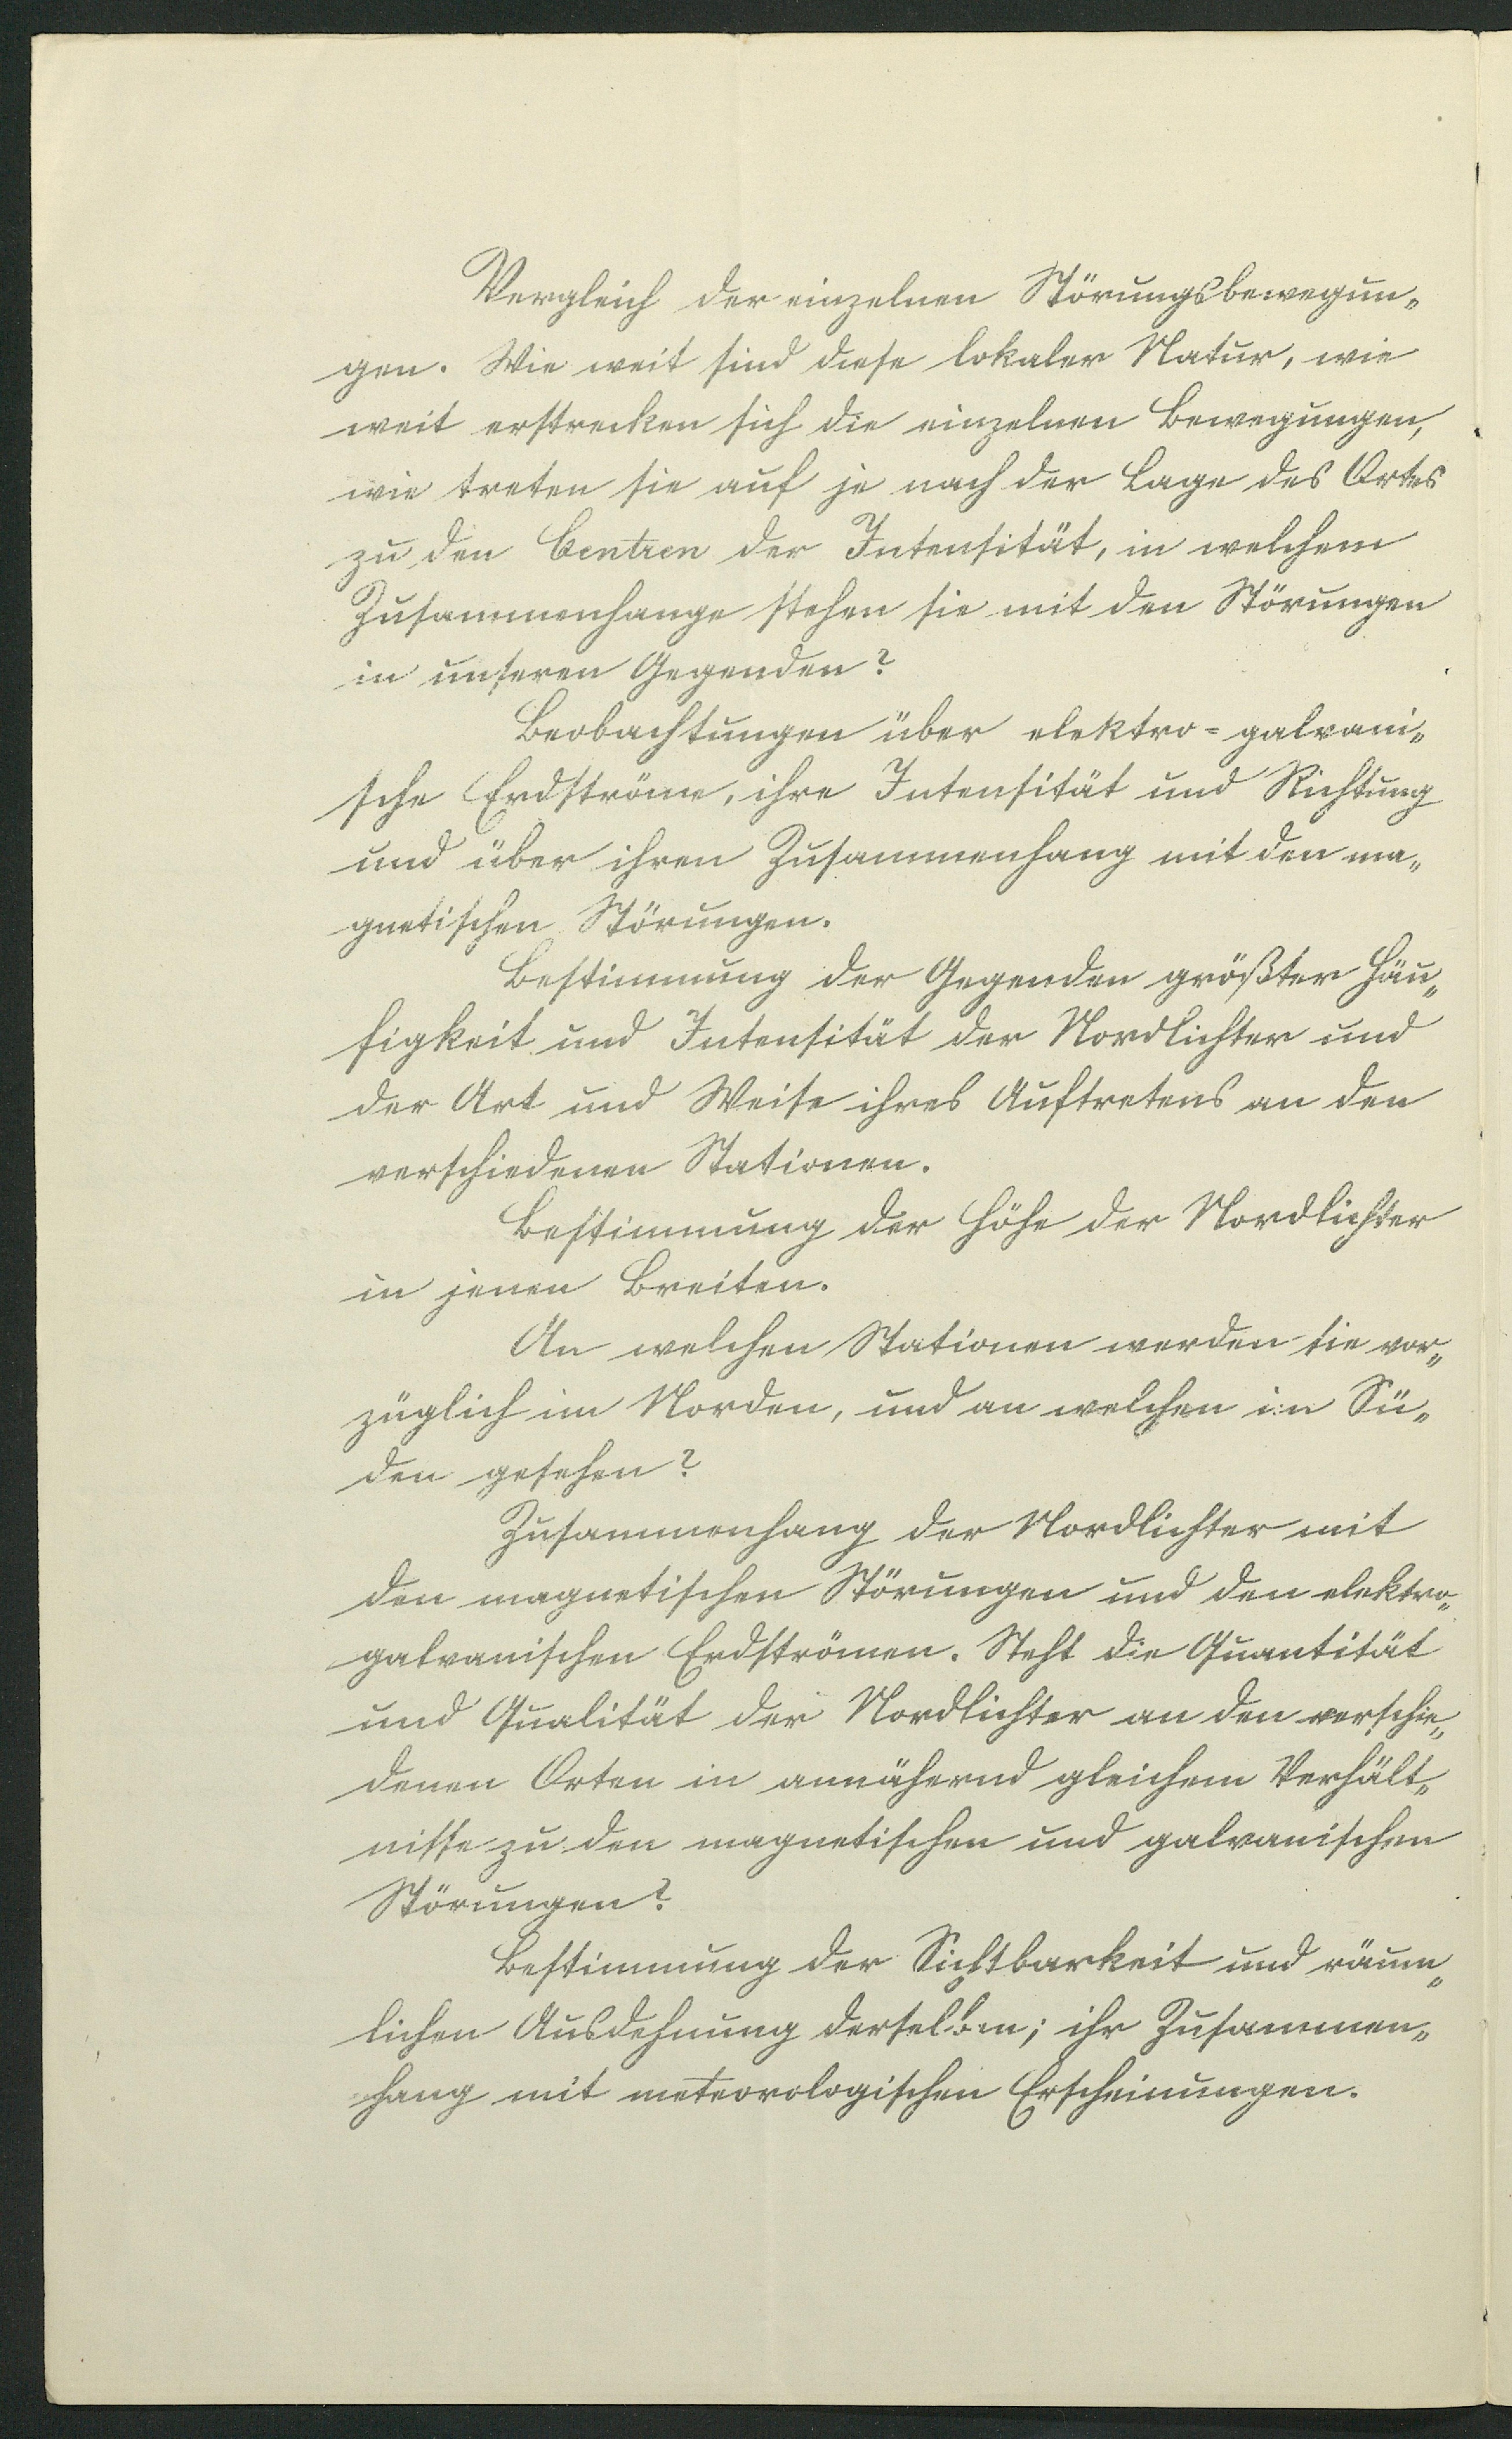 Vergleich der einzelnen Störungsbewegun„
gen. Wie weit sind diese lokaler Natur, wie
weit erstrecken sich die einzelnen Bewegungen,
wie treten sie auf je nach der Lage des Ortes
zu den Centren der Intensität, in welchem
Zusammenhange stehen sie mit den Störungen
in unseren Gegenden?
Beobachtungen über elektro=galvani„
sche Erdströme, ihre Intensität und Richtung
und über ihren Zusammenhang mit den ma„
gnetischen Störungen.
Bestimmung der Gegenden größter Häu„
figkeit und Intensität der Nordlichter und
der Art und Weise ihres Auftretens an den
verschiedenen Stationen.
Bestimmung der Höhe der Nordlichter
in jenen Breiten.
An welchen Stationen werden sie vor„
züglich im Norden, und an welchen im Sü„
den gesehen?
Zusammenhang der Nordlichter mit
den magnetischen Störungen und den elektro„
galvanischen Erdströmen. Steht die Quantität
und Qualität der Nordlichter an den verschie„
denen Orten in annähernd gleichem Verhält„
nisse zu den magnetischen und galvanischen
Störungen?
Bestimmung der Sichtbarkeit und räum„
lichen Ausdehnung derselben; ihr Zusammen„
hang mit meteorologischen Erscheinungen.